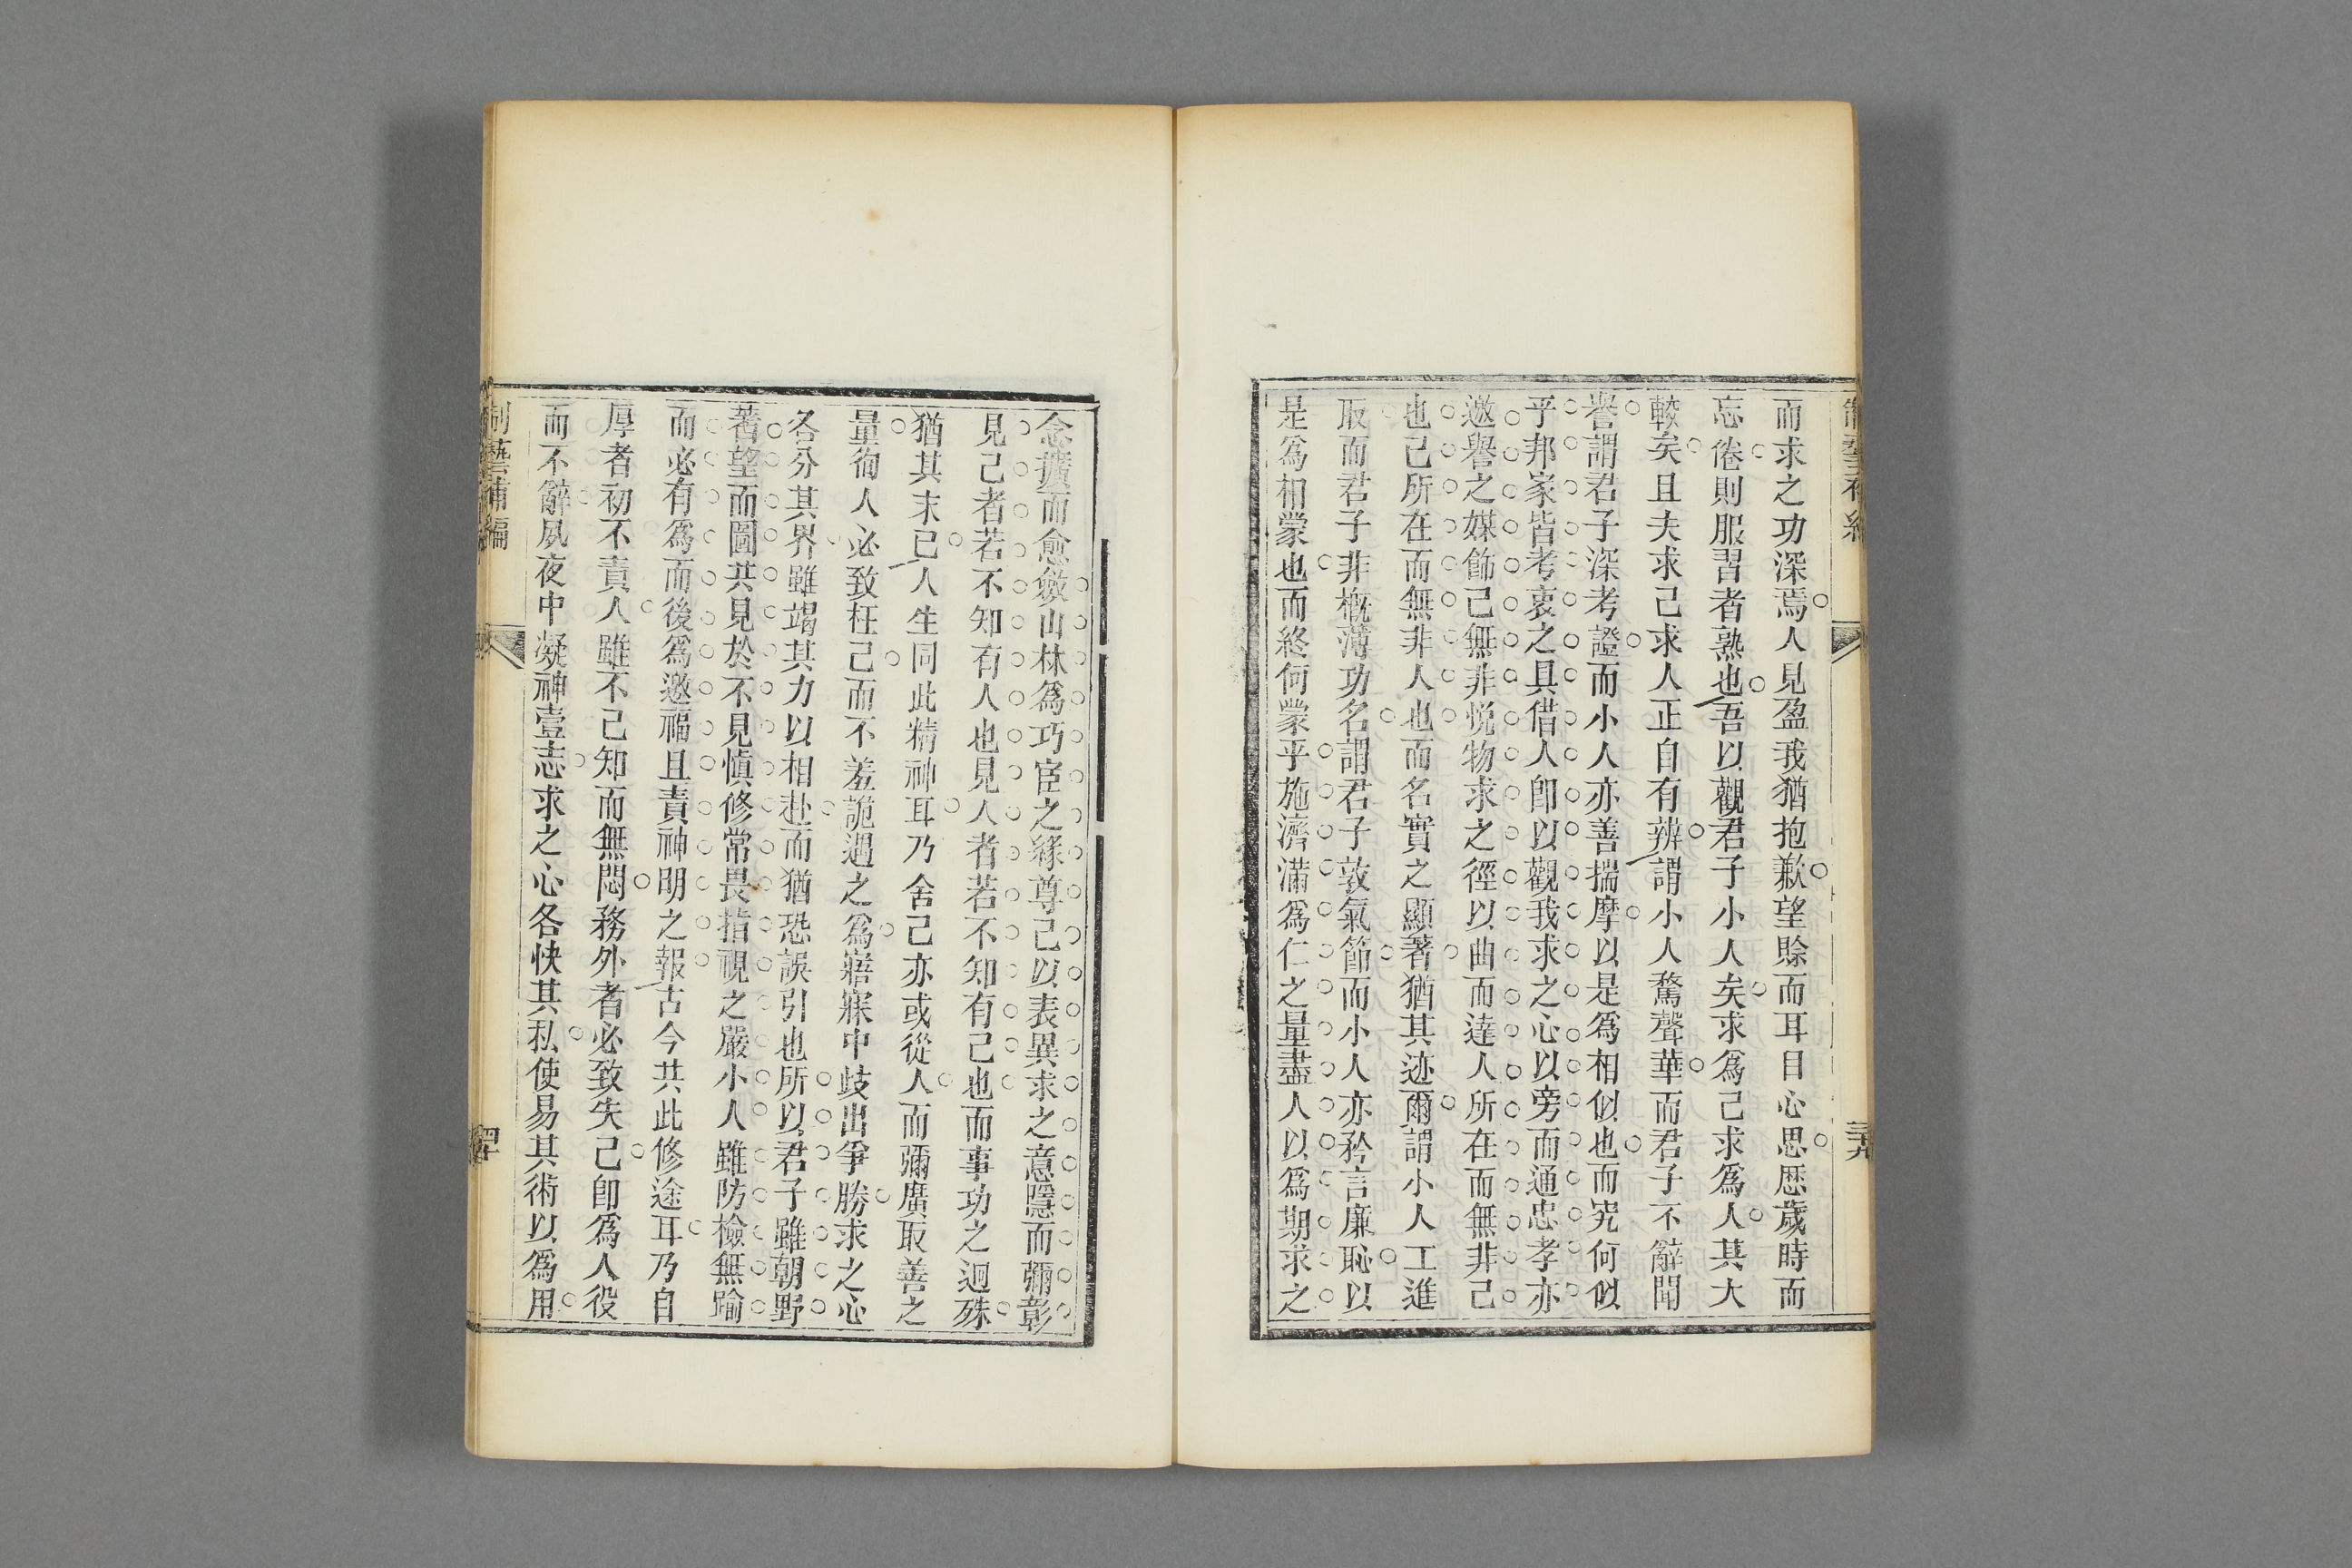 而求之功深焉人見盈我猶抱歉望賒而耳目心思歷歲時而
忘倦則服習者熟也吾以觀君子小人矣求爲己求爲人其大
較矣且夫求己求人正自有辨謂小人騖聲華而君子不辭聞
譽謂君子深考證而小人亦善揣摩以是爲相似也而究何似
乎邦家皆考衷之具借人卽以觀我求之心以旁而通忠孝亦
邀譽之媒飾己無非悅物求之徑以曲而達人所在而無非己
也己所在而無非人也而名實之顯著猶其迹爾謂小人工進
取而君子非概薄功名謂君子敦氣節而小人亦矜言廉恥以
是爲相蒙也而終何蒙乎施濟滿爲仁之量盡人以爲期求之
三十九
念擴而愈斂山林爲巧宦之緣尊己以表異求之意隱而彌彰
見己者若不知有人也見人者若不知有己也而事功之迥殊
猶其末已人生同此精神耳乃舍己亦或從人而彌廣取善之
量徇人必致枉己而不羞詭遇之爲寤寐中歧出爭勝求之心
各分其界雖竭其力以相赴而猶恐誤引也所以君子雖朝野
著望而圖其見於不見愼修常畏指視之嚴小人雖防檢無踰
而必有爲而後爲邀福且責神明之報古今共此修途耳乃自
厚者初不責人雖不己知而無悶務外者必致失己卽爲人役
而不辭夙夜中凝神壹志求之心各快其私使易其術以爲用
制藝補編
四十